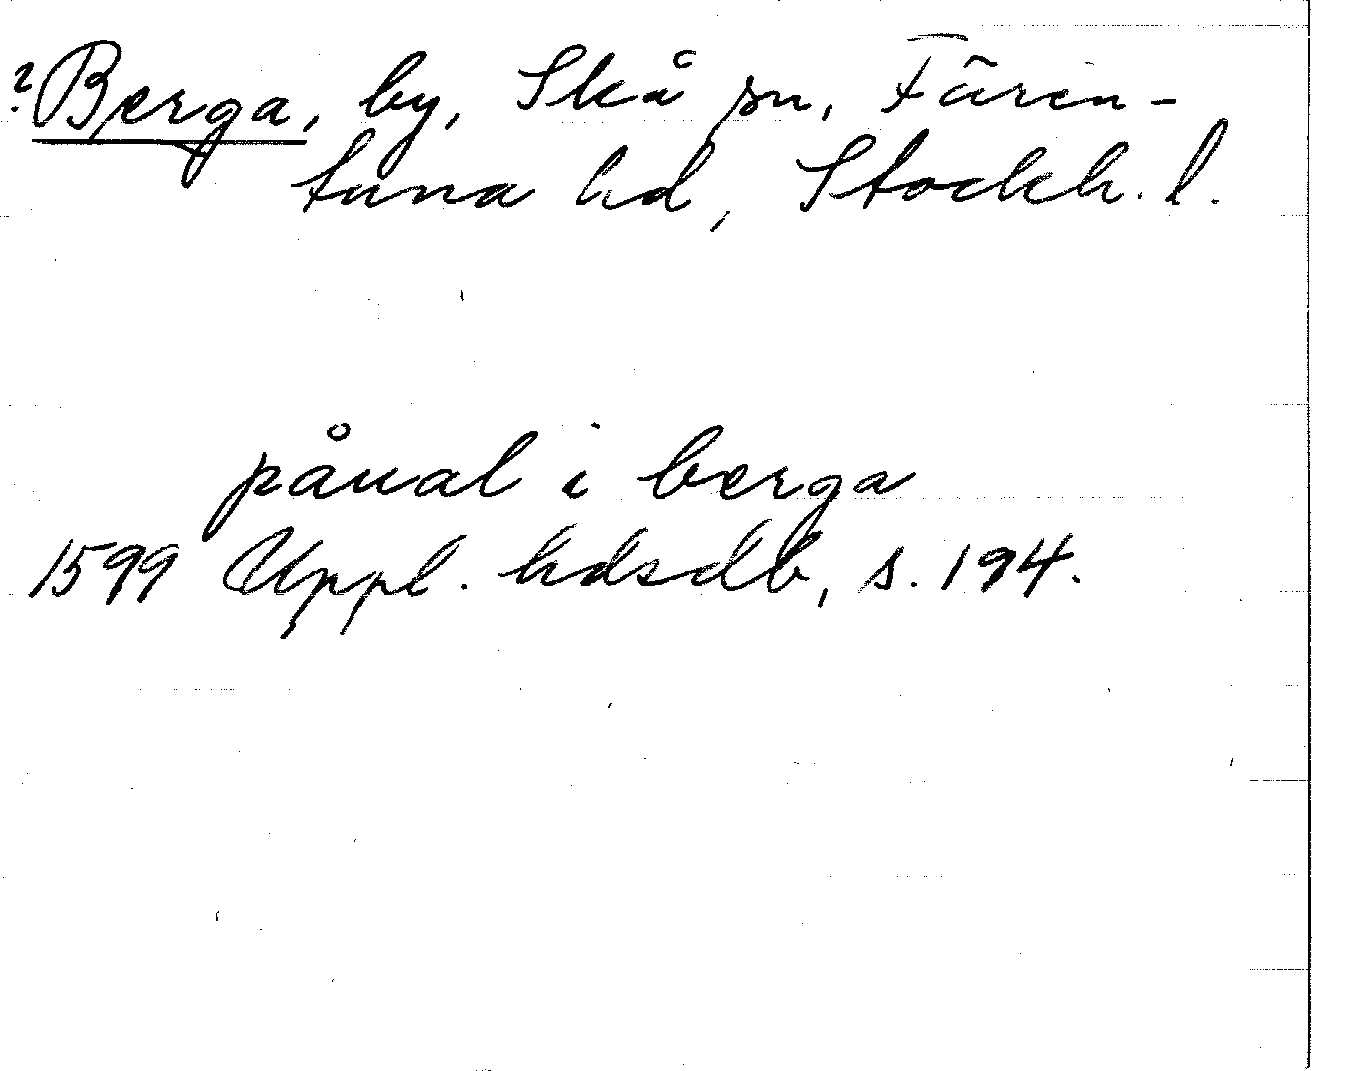 ? Berga, by, Skå sn, Fären-
tuna hd, Stockh. l.
påual i berga
1599 Uppl. hdsdb, s. 194.